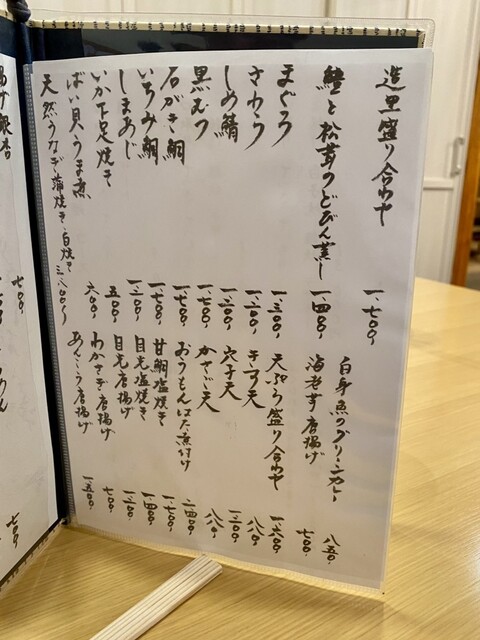 造里盛り合わせ 一、七〇〇
鱧と松茸のどびん蒸し 一、四〇〇
まぐろ 一、三〇〇
さわら 一、二〇〇
しめ鯖 一、二〇〇
黒むつ 一、七〇〇
石がき鯛 一、七〇〇
いちみ鯛 一、七〇〇
しまあじ 一、二〇〇
いか下足焼き 五〇〇
ばい貝うま煮 六〇〇
天然うなぎ蒲焼き・白焼き 三、八〇〇〜
白身魚のグリーンカレー 八五〇
海老芋唐揚げ 七〇〇
天ぷら盛り合わせ 一、六〇〇
キス天 八八〇
穴子天 一、二〇〇
かさご天 八八〇
おうもんはた煮付け 二、四〇〇
甘鯛塩焼き 一、七〇〇
目光塩焼き 一、四〇〇
目光唐揚げ 一、二〇〇
わかさぎ唐揚げ 七〇〇
あんこう唐揚げ 一、五〇〇
揚げ銀杏
七〇〇
七〇〇